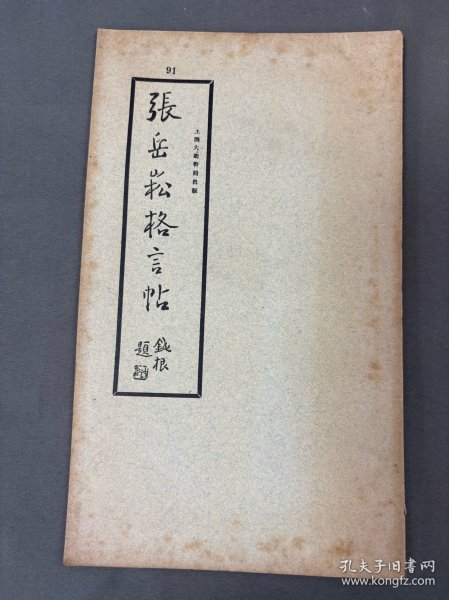 91
張岳崧格言帖
鈍根
題
上海大眾書局出版
孔夫子旧书网
www.kongfz.com